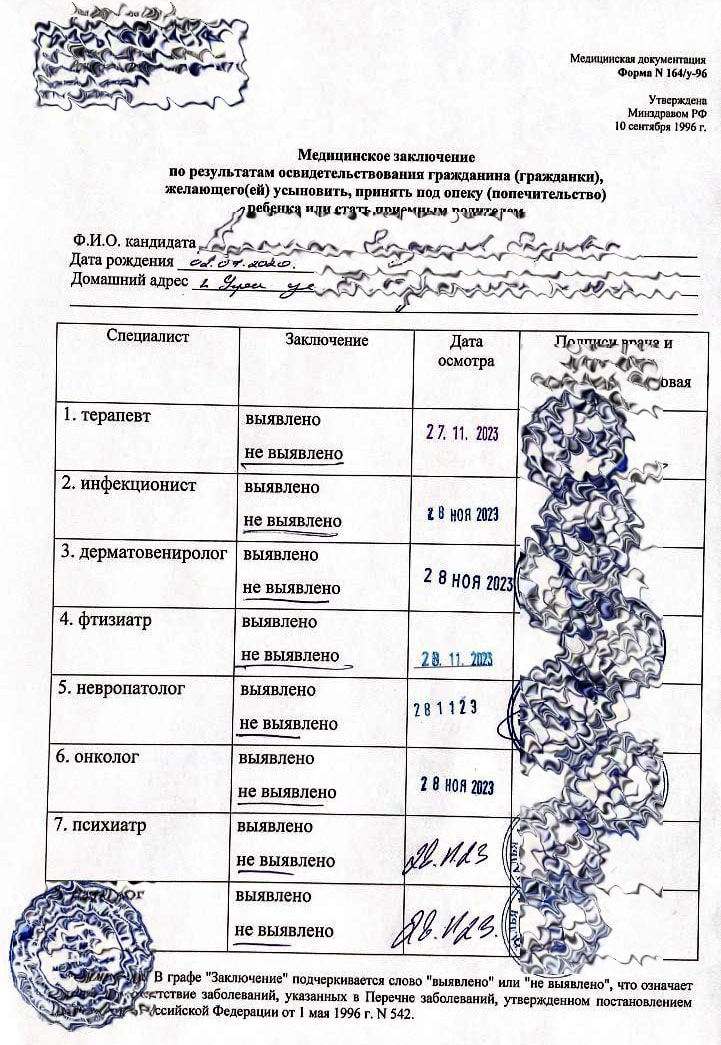 Медицинская документация
Форма N 164/у-96
Утверждена
Минздравом РФ
10 сентября 1996 г.
Медицинское заключение
по результатам освидетельствования гражданина (гражданки),
желающего(ей) усыновить, принять под опеку (попечительство)
ребенка или стать приемным родителем
Ф.И.О. кандидата
Дата рождения
Домашний адрес
Специалист Заключение Дата осмотра Подписи врача и
1. терапевт выявлено
не выявлено 27. 11. 2023
2. инфекционист выявлено
не выявлено 28 НОЯ 2023
3. дерматовениролог выявлено
не выявлено 28 НОЯ 2023
4. фтизиатр выявлено
не выявлено 28. 11. 2023
5. невропатолог выявлено
не выявлено 281123
6. онколог выявлено
не выявлено 28 НОЯ 2023
7. психиатр выявлено
не выявлено 28.11.23
выявлено
не выявлено 28.11.23.
В графе "Заключение" подчеркивается слово "выявлено" или "не выявлено", что означает
заболеваний, указанных в Перечне заболеваний, утвержденном постановлением
Федерации от 1 мая 1996 г. N 542.